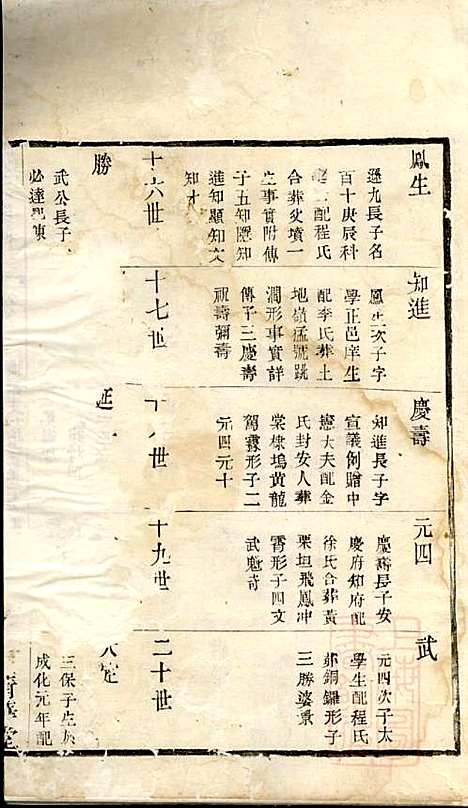 鳳生
遜九長子名
百十庚辰科
配程氏
合葬 墳一
生事實附傳
子五知 知
進知顯知文
知才
知進
鳳生次子字
學正邑庠生
配李氏葬土
地嶺猛虎跳
澗形事實詳
傳子三慶壽
祖壽彌壽
慶壽
知進長子字
宣議例贈中
憲大夫配金
氏封安人葬
棠棣塢黃龍
駕霧形子二
元四元十
元四
慶壽長子安
慶府知府配
徐氏合葬黃
栗垣飛鳳冲
霄形子四文
武魁奇
武
元四次子太
學生配程氏
葬銅鑼形子
三勝婆秉
十六世
十七世
十八世
十九世
二十世
勝
武公長子
必達配陳
延
三保子生於
成化元年配
堂